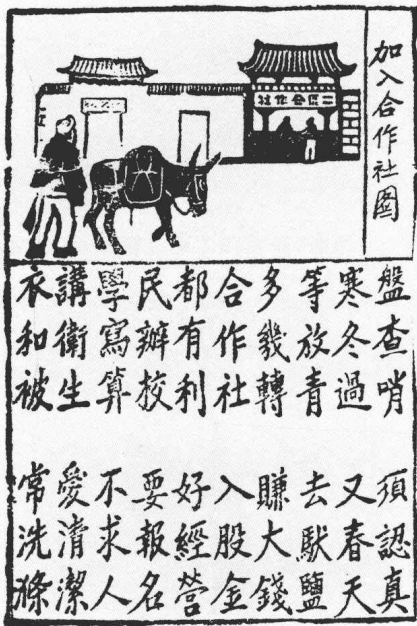 加入合作社图
二區合作社
盤查哨 須認真
寒冬過 又春天
等放青 去馱鹽
多幾轉 賺大錢
合作社 入股金
都有利 好經營
民辦校 要報名
學寫算 不求人
講衛生 愛清潔
衣和被 常洗滌